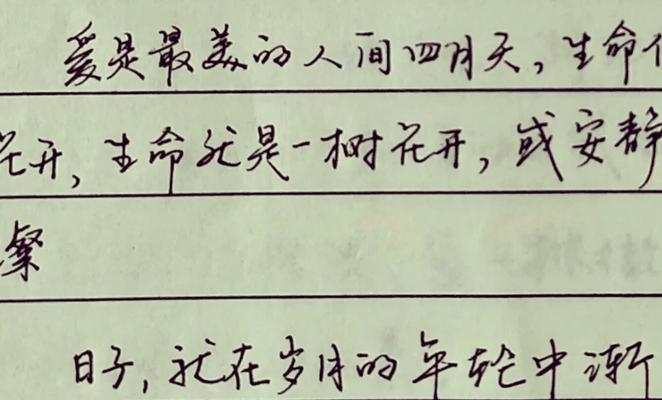 爱是最美的人间四月天，生命
花开，生命就是一树花开，或安静
璨
日子，就在岁月的年轮中渐